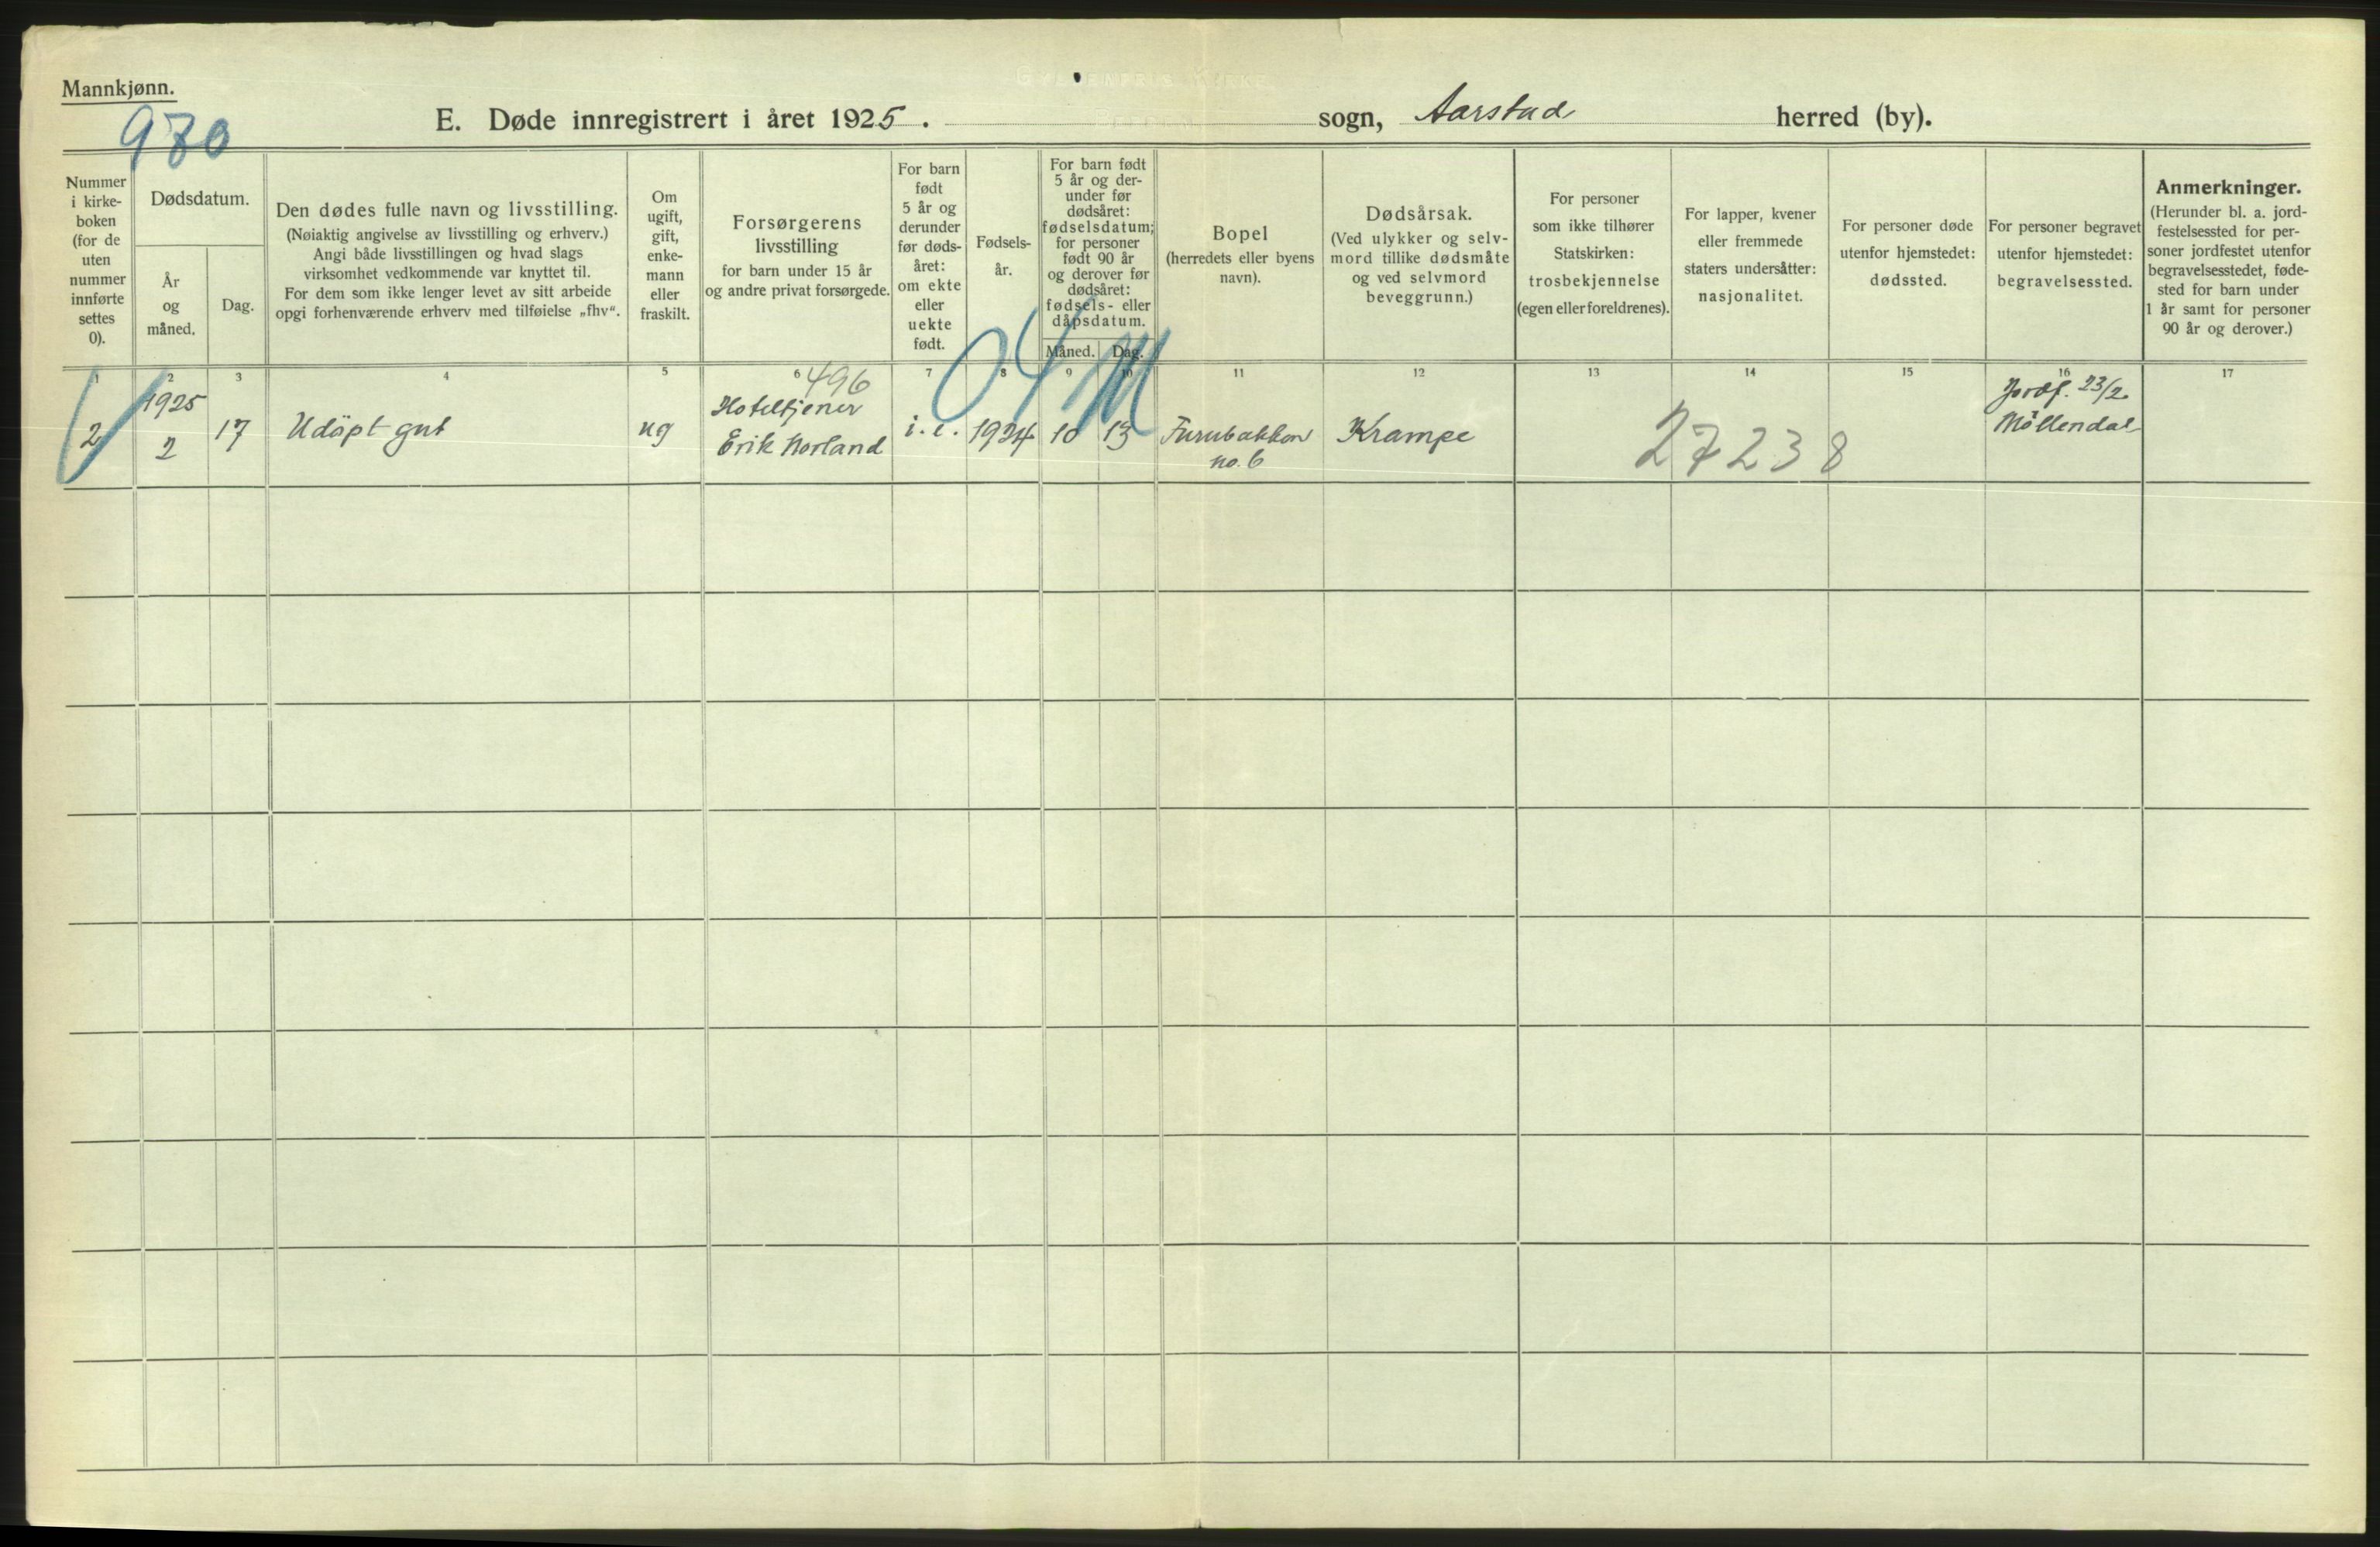 GYLDENPRIS KIRKE
BERGEN
Mannkjønn.
980
E. Døde innregistrert i året 1925. sogn, Aarstad herred (by).
Nummer
i kirke-
boken
(for de
uten
nummer
innførte
settes
0).
Dødsdatum.
År
og
måned.
Dag.
Den dødes fulle navn og livsstilling.
(Nøiaktig angivelse av livsstilling og erhverv.)
Angi både livsstillingen og hvad slags
virksomhet vedkommende var knyttet til.
For dem som ikke lenger levet av sitt arbeide
opgi forhenværende erhverv med tilføielse „fhv“.
Om
ugift,
gift,
enke-
mann
eller
fraskilt.
Forsørgerens
livsstilling
for barn under 15 år
og andre privat forsørgede.
For barn
født
5 år og
derunder
før døds-
året:
om ekte
eller
uekte
født.
Fødsels-
år.
For barn født
5 år og der-
under før
dødsåret:
fødselsdatum;
for personer
født 90 år
og derover før
dødsåret:
fødsels- eller
dåpsdatum.
Måned. Dag.
Bopel
(herredets eller byens
navn).
Dødsårsak.
(Ved ulykker og selv-
mord tillike dødsmåte
og ved selvmord
beveggrunn.)
For personer
som ikke tilhører
Statskirken:
trosbekjennelse
(egen eller foreldrenes).
For lapper, kvener
eller fremmede
staters undersåtter:
nasjonalitet.
For personer døde
utenfor hjemstedet:
dødssted.
For personer begravet
utenfor hjemstedet:
begravelsessted.
Anmerkninger.
(Herunder bl. a. jord-
festelsessted for per-
soner jordfestet utenfor
begravelsesstedet, føde-
sted for barn under
1 år samt for personer
90 år og derover.)
1 2 3 4 5 6 7 8 9 10 11 12 13 14 15 16 17
496
04 M
2
1925
2
17
Udøpt gut
ug
Hoteltjener
Erik Norland
i. e.
1924
10
13
Furubakken
no. 6
Krampe
27238
Jordf. 23/2.
Möllendal